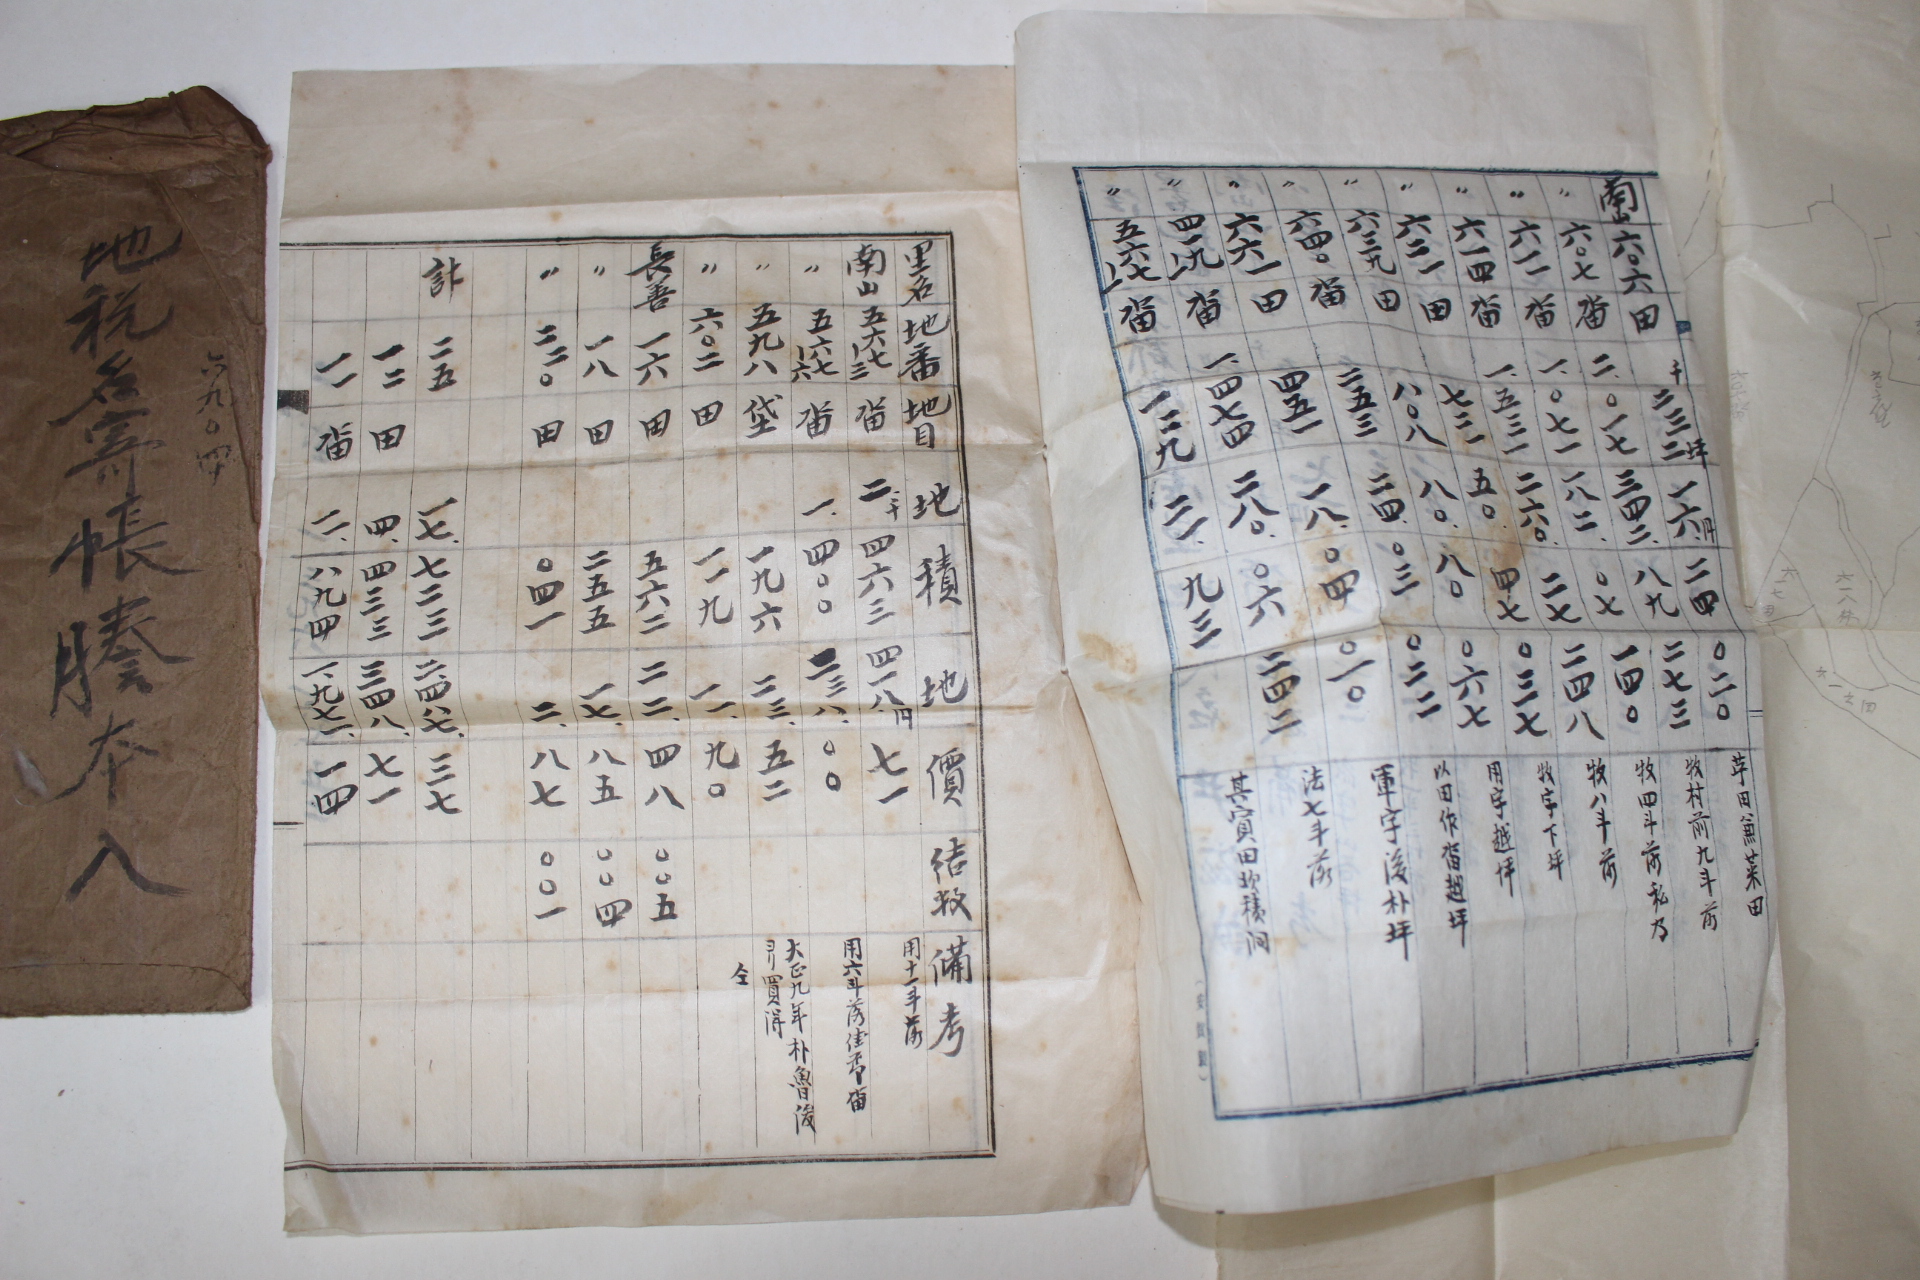 地税名寄帳謄本入
六九〇四
南山 六〇六 田 二三二坪 一六.二四 〇二〇 芹田兼菜田
〃 六〇七 畓 二.〇一七 三四二.八九 二七三 牧村前九斗落
〃 六一一 畓 一.〇七一 一八二.〇七 一四〇
〃 六一四 畓 一.五三一 二六〇.二七 二四八 牧八斗落
〃 六二一 田 七三一 五〇.四七 〇三七 牧字下坪
〃 六三九 田 八〇八 八〇.八〇 〇六七 用字越坪
〃 六四〇 畓 二五三 三四.〇三 〇二二 以田作畓越坪
〃 六六一 田 四五一 一八.〇四 〇一〇 軍字後朴坪
〃 四一九ノ一 畓 一.四七四 二八〇.〇六 二四二 法七斗落
〃 五六七ノ一 畓 一二九 二一.九三
里名 地番 地目 地積 地價 結数 備考
南山 五六七ノ三 畓 二.四六三 四一八.七一 用十一斗落
〃 五六七ノ六 畓 一.四〇〇 二三八.〇〇
〃 五九八 垈 一九六 二三.五二 大正九年朴魯俊ヨリ買得
〃 六〇二 田 一一九 一一.九〇 仝
長善 一六 田 五六二 二二.四八 〇〇五
〃 一八 田 二五五 一七.八五 〇〇四
〃 二二〇 田 〇四一 二.八七 〇〇一
計 二五 一七.七二三 二.四八七.三三七
一二 田 四.四三三 三四八.七一
一一 畓 一一.八九四 一.九七一.一四